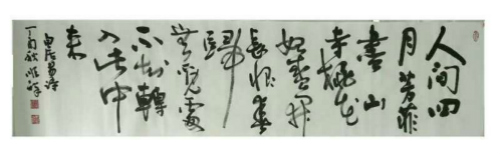 人间四
月芳菲
盡山
寺桃花
始盛开
長恨春
歸
無覓處
不知轉
入此中
来
白居易诗
丁酉秋